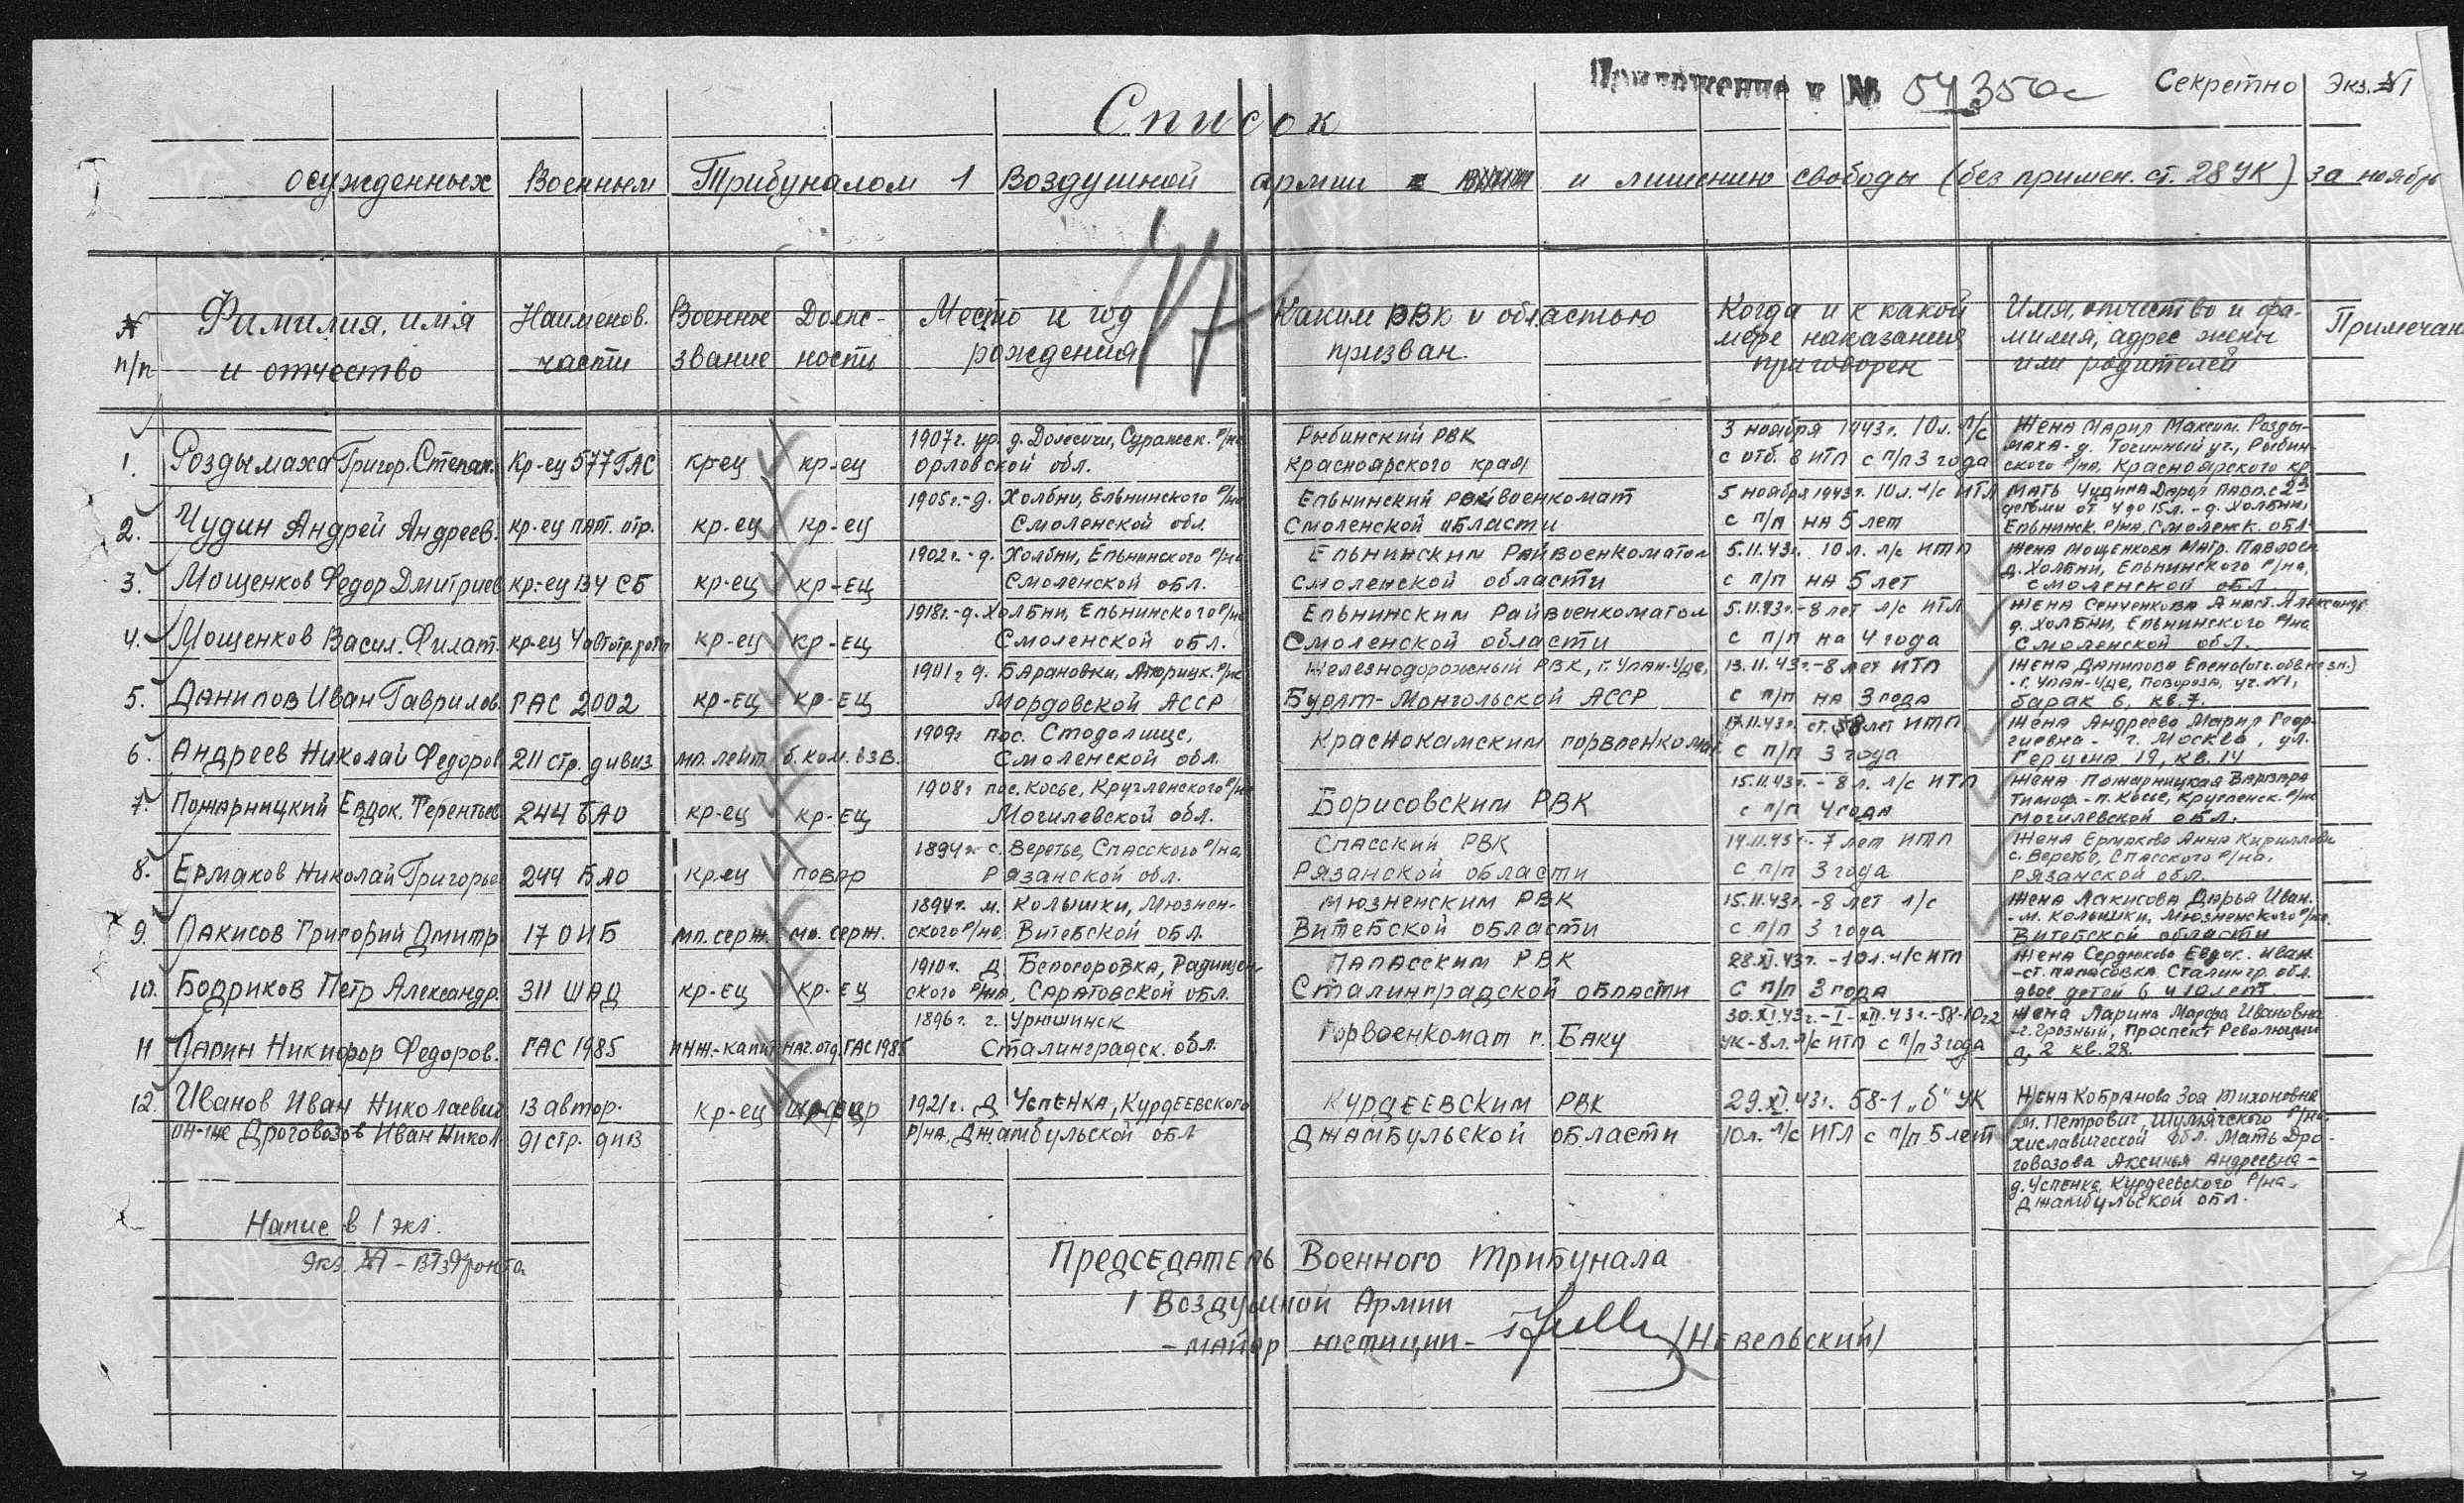 Приложение к № 54350с Секретно Экз. №1
Список
осужденных Военным Трибуналом 1 Воздушной армии к лишению свободы (без примен. ст. 28 УК) за ноябрь
№ п/п
Фамилия, имя и отчество
Наименов. части
Военное звание
Должность
Место и год рождения
Каким РВК и областью призван
Когда и к какой мере наказания приговорен
Имя, отчество и фамилия, адрес жены или родителей
Примечан
47
1. Роздымаха Григор. Степан. Кр-ец 577 ГАС кр-ец кр-ец 1907 г. ур. д. Долесичи, Суражск. р/на Орловской обл. Рыбинский РВК Красноярского края 3 ноября 1943 г. 10 л. л/с с отб. в ИТЛ с п/п 3 года Жена Мария Максим. Роздымаха - д. Точинный уч., Рыбинского р/на, Красноярского кр
2. Чудин Андрей Андреев. кр-ец кр-ец кр-ец 1905 г. - д. Холбни, Ельнинского р/на Смоленской обл. Ельнинский Райвоенкомат Смоленской области 5 ноября 1943 г. 10 л. л/с ИТЛ с п/п на 5 лет Мать Чудина Дарья Павл. с 2я детьми от 4 до 15 л. - д. Холбни, Ельнинск. р/на, Смоленск. обл.
3. Мощенков Федор Дмитриев кр-ец 134 СБ кр-ец кр-ец 1902 г. - д. Холбни, Ельнинского р/на Смоленской обл. Ельнинским Райвоенкоматом Смоленской области 5.11.43 г. 10 л. л/с ИТЛ с п/п на 5 лет Жена Мощенкова Матр. Павлов. д. Холбни, Ельнинского р/на, Смоленской обл
4. Мощенков Васил. Филат. кр-ец 4 автотр. рота кр-ец кр-ец 1918 г. - д. Холбни, Ельнинского р/на Смоленской обл. Ельнинским Райвоенкоматом Смоленской области 5.11.43 г. - 8 лет л/с ИТЛ с п/п на 4 года Жена Сенченкова Анаст. Александр. д. Холбни, Ельнинского р/на Смоленской обл.
5. Данилов Иван Гаврилов. ГАС 2002 кр-ец кр-ец 1901 г д. Барановки, р/на Мордовской АССР Железнодорожный РВК, г. Улан-Уде, Бурят-Монгольской АССР 13.11.43 г. - 8 лет ИТЛ с п/п на 3 года Жена Данилова Елена г. Улан-Уде, уч. №1, барак 6, кв. 7.
6. Андреев Николай Федоров 211 стр. дивиз мл. лейт. б. ком. взв. 1909 г пос. Стодолище, Смоленской обл. Краснокамским горвоенкомат. 17.11.43 г. лет ИТЛ с п/п 3 года Жена Андреева Мария Георгиевна - г. Москва, ул. Герцена 19, кв. 14
7. Пожарницкий Евдок. Терентьев 244 БАО кр-ец кр-ец 1908 г пос. Косье, Круглянского р/на Могилевской обл. Борисовским РВК 15.11.43 г. - 8 л. л/с ИТЛ с п/п 4 года Жена Пожарницкая Варвара Тимоф. - п. Косье, Круглянск. р/на Могилевской обл.
8. Ермаков Николай Григорье 244 БАО кр-ец повар 1894 г с. Веретье, Спасского р/на, Рязанской обл. Спасский РВК Рязанской области 14.11.43 г. - 7 лет ИТЛ с п/п 3 года Жена Ермакова Анна Кирилловн с. Веретье, Спасского р/на. Рязанской обл.
9. Лакисов Григорий Дмитр 17 ОИБ мл. серж. мл. серж. 1894 г. м. Колышки, Мюзненского р/на Витебской обл. Мюзненским РВК Витебской области 15.11.43 г. - 8 лет л/с с п/п 3 года Жена Лакисова Дарья Иван. - м. Колышки, Мюзненского р/на. Витебской области
10. Бодриков Петр Александр. 311 ШАД кр-ец кр-ец 1910 г. д. Белогоровка, Радищевского р/на, Саратовской обл. Паласским РВК Сталинградской области 28.XI.43 г. - 10 л. л/с ИТЛ с п/п 3 года Жена Сердюкова Евдок. Иван. - ст. Паласовка Сталингр. обл. двое детей 6 и 10 лет.
11 Ларин Никифор Федоров. ГАС 1985 инж.-капит нач. отд. ГАС 1985 1896 г. г. Урюпинск Сталинградск. обл. Горвоенкомат г. Баку 30.XI.43 г. УК - 8 л. л/с ИТЛ с п/п 3 года Жена Ларина Марфа Ивановна - г. Грозный, проспект Революции д. 2 кв. 28.
12. Иванов Иван Николаевич он-же Дроговозов Иван Никол. 13 автор. 91 стр. див кр-ец 1921 г. д. Успенка, Курдеевского р/на, Джамбульской обл Курдеевским РВК Джамбульской области 29.XI.43 г. 58-1 „б“ УК 10 л. л/с ИТЛ с п/п 5 лет Жена Кобранова Зоя Тихоновна м. Петрович, Шумячского р/на, Хиславической обл. Мать Дроговозова Аксинья Андреевна - д. Успенка, Курдеевского р/на, Джамбульской обл.
Напис в 1 экз.
Экз. №1 - ВТ з Фронта
Председатель Военного Трибунала
1 Воздушной Армии
- майор юстиции - /Невельский/